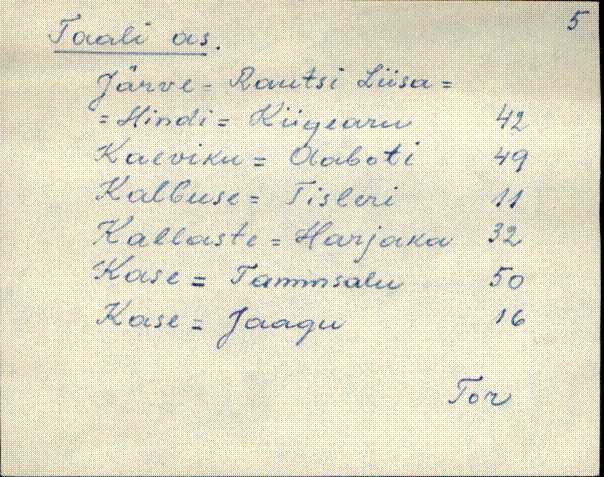 5
Taali as.
Järve = Rautsi Liisa =
= Hindi = Kiigearu 42
Kaeviku = Aaboti 49
Kalbuse = Tisleri 11
Kallaste = Harjaka 32
Kase = Tammsalu 50
Kase = Jaagu 16
Tor